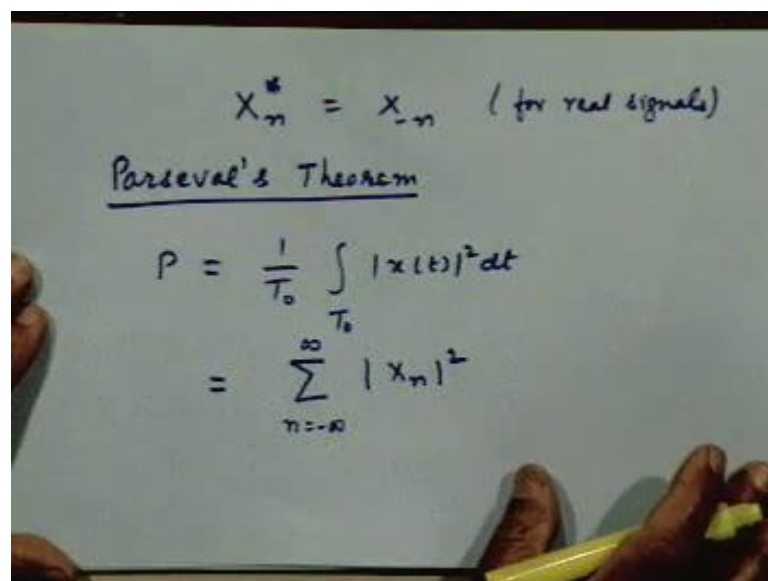 X*ₙ = X₋ₙ (for real signals)
Parseval's Theorem
P = 1/T₀ ∫_T₀ |x(t)|² dt
= ∑_{n=-∞}^{∞} |Xₙ|²